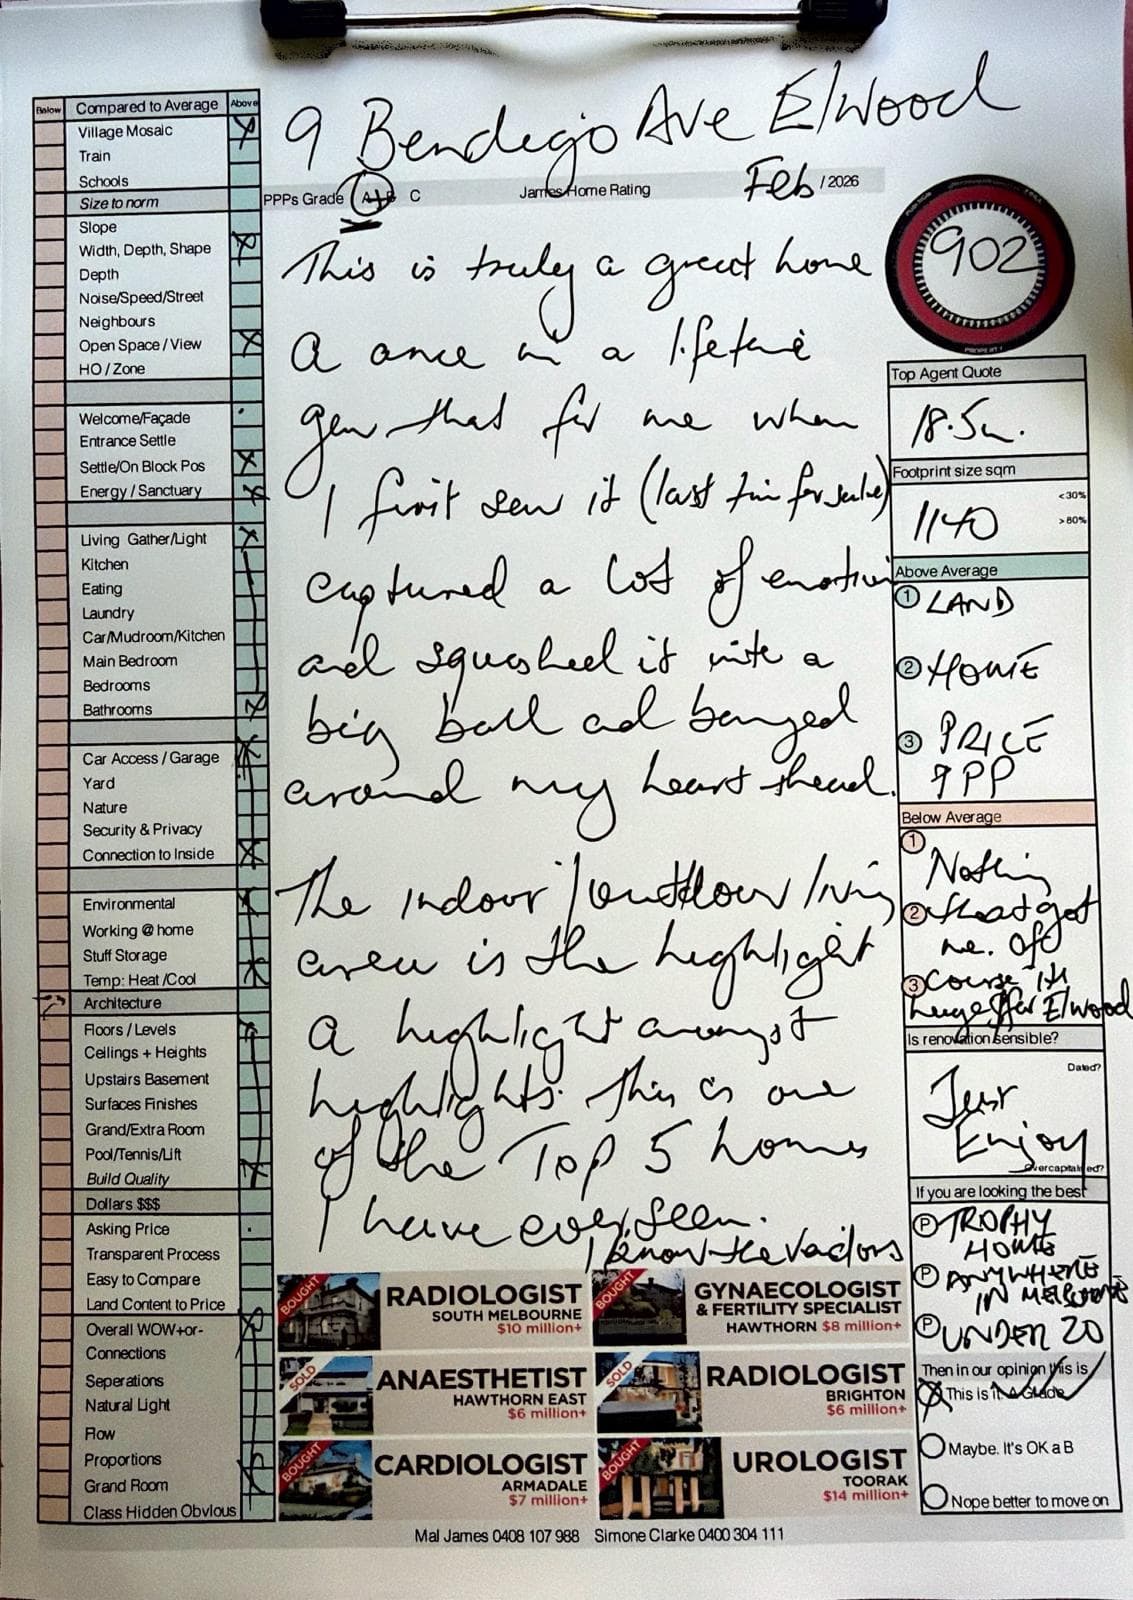 9 Bendigo Ave Elwood
PPPs Grade A B C
James Home Rating
Feb / 2026
902
Below Compared to Average Above
Village Mosaic
Train
Schools
Size to norm
Slope
Width, Depth, Shape
Depth
Noise/Speed/Street
Neighbours
Open Space / View
HO / Zone
Welcome/Façade
Entrance Settle
Settle/On Block Pos
Energy / Sanctuary
Living Gather/Light
Kitchen
Eating
Laundry
Car/Mudroom/Kitchen
Main Bedroom
Bedrooms
Bathrooms
Car Access / Garage
Yard
Nature
Security & Privacy
Connection to Inside
Environmental
Working @ home
Stuff Storage
Temp: Heat /Cool
Architecture
Floors / Levels
Ceilings + Heights
Upstairs Basement
Surfaces Finishes
Grand/Extra Room
Pool/Tennis/Lift
Build Quality
Dollars $$$
Asking Price
Transparent Process
Easy to Compare
Land Content to Price
Overall WOW+or-
Connections
Seperations
Natural Light
Flow
Proportions
Grand Room
Class Hidden Obvious
This is truly a great home
A once in a lifetime
gem that for me when
I first saw it (last time for sale)
captured a lot of emotion
and squashed it into a
big ball and banged
around my heart & head.
The indoor / outflow living
area is the highlight
A highlight amongst
highlights. This is one
of the Top 5 homes
I have ever seen.
I know the vendors
Top Agent Quote
18.5m.
Footprint size sqm
<30%
1140
>80%
Above Average
1 LAND
2 HOME
3 PRICE
9 PP
Below Average
1
Nothing
2 that got
me. Of
3 course its
huge $ for Elwood
Is renovation sensible?
Dated?
Just
Enjoy
Overcapitalised?
If you are looking the best
P TROPHY
HOME
P ANYWHERE
IN MELBOURNE
P UNDER 20
Then in our opinion this is
This is it. A Grade
Maybe. It's OK a B
Nope better to move on
BOUGHT
RADIOLOGIST
SOUTH MELBOURNE
$10 million+
BOUGHT
GYNAECOLOGIST
& FERTILITY SPECIALIST
HAWTHORN $8 million+
SOLD
ANAESTHETIST
HAWTHORN EAST
$6 million+
SOLD
RADIOLOGIST
BRIGHTON
$6 million+
BOUGHT
CARDIOLOGIST
ARMADALE
$7 million+
BOUGHT
UROLOGIST
TOORAK
$14 million+
Mal James 0408 107 988 Simone Clarke 0400 304 111